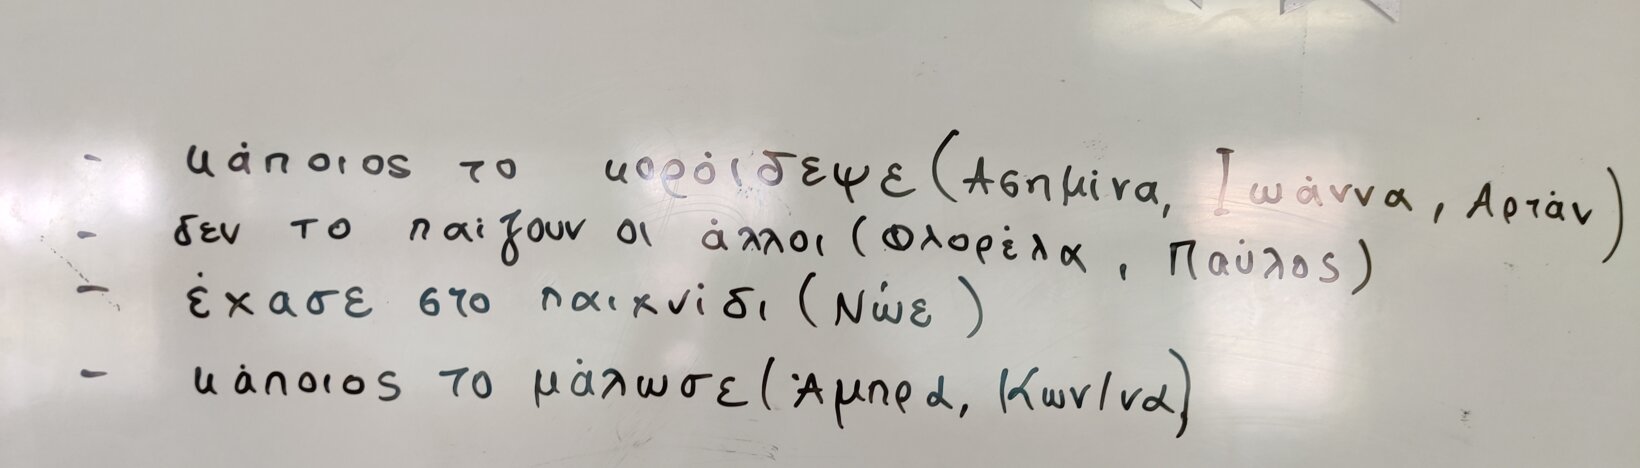 - κάποιος το κορόιδεψε (Ασημίνα, Ιωάννα, Αρτάν)
- δεν το παίζουν οι άλλοι (Φλορέλα, Παύλος)
- έχασε στο παιχνίδι (Νώε)
- κάποιος το μάλωσε (Άμπρα, Κων/να)